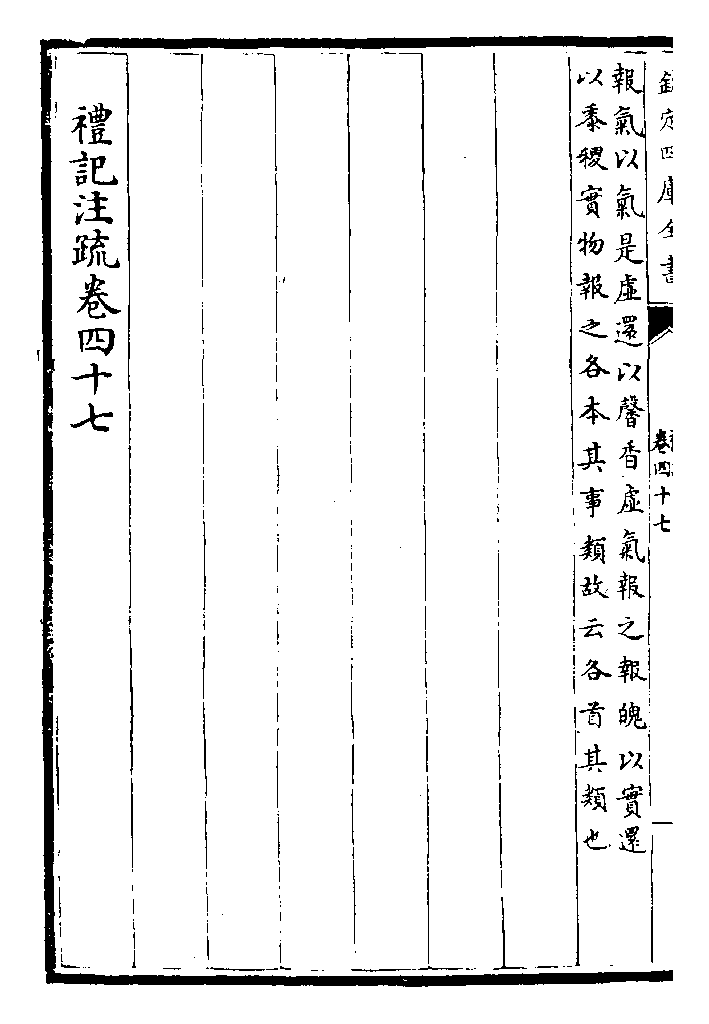 欽定四庫全書
卷四十七
報氣以氣是虛還以馨香虛氣報之報魄以實還
以黍稷實物報之各本其事類故云各首其類也
禮記注疏卷四十七